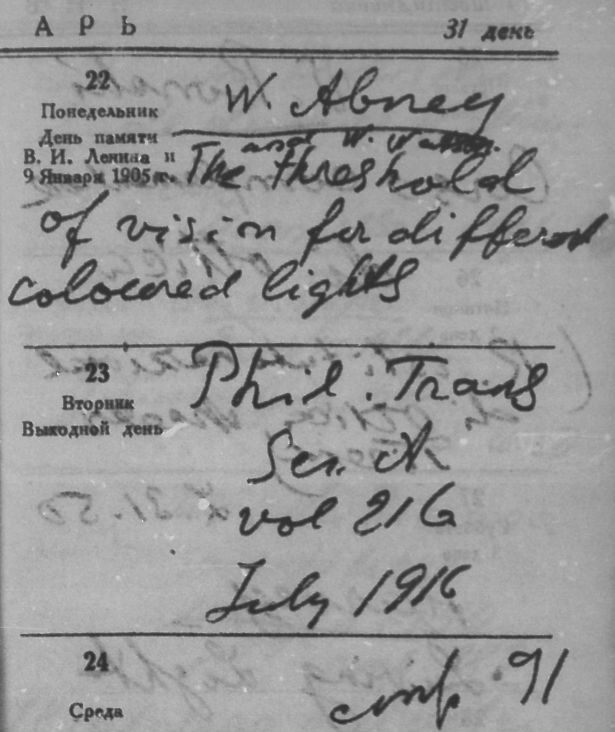 АРЬ 31 день
22
Понедельник
День памяти
В. И. Ленина и
9 Января 1905 г.
W. Abney
and W. Watson.
The threshold
of vision for different
coloured lights
23
Вторник
Выходной день
Phil. Trans
Ser. A
vol 216
July 1916
24
Среда
стр 91